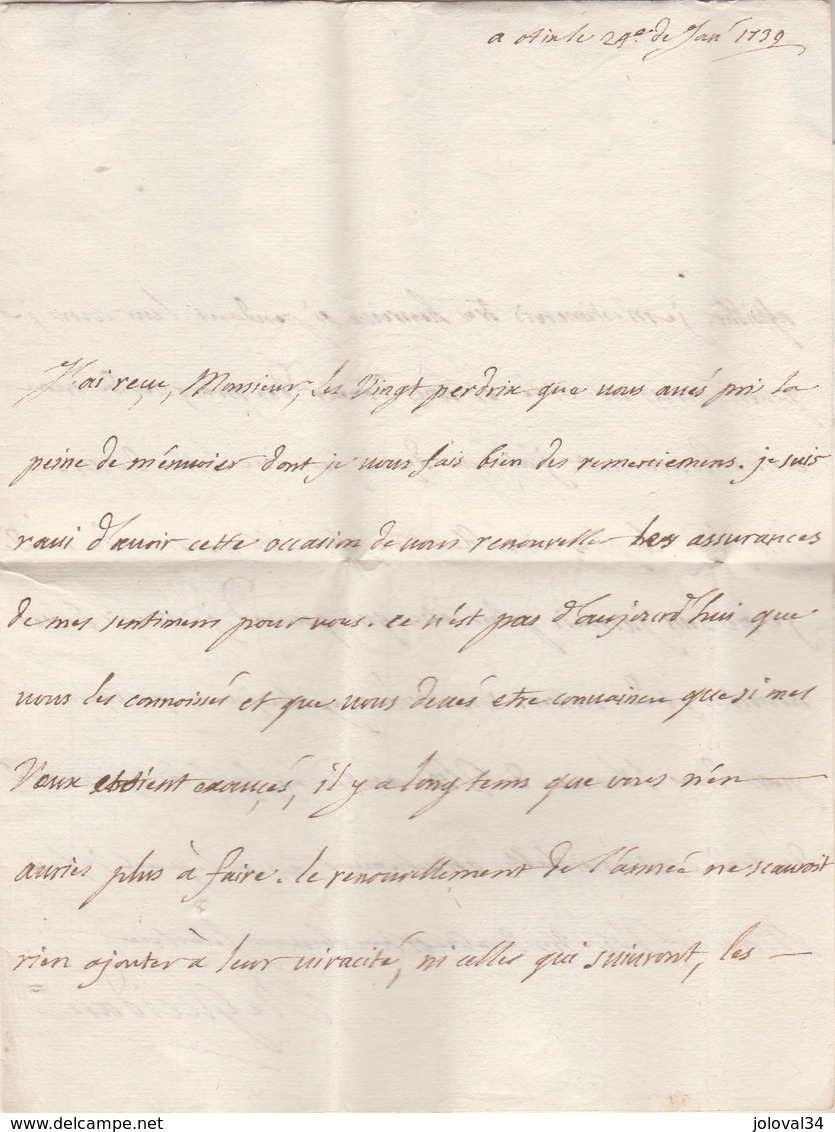 a le 29e de Janr 1739
J'ai reçu, Monsieur, les Vingt perdrix que vous avés pris la
peine de m'énvoier dont je vous fais bien des remerciemens. je suis
ravi d'avoir cette occasion de vous renouveller les assurances
de mes sentimens pour vous. ce n'est pas d'aujourd'hui que
vous les connoissés et que vous devés etre convaincu que si mes
Vœux étoient exaucés, il y a longtems que vous n'en
auriés plus à faire. le renouvellement de l'année ne scauroit
rien ajouter à leur vivacité, ni celles qui suivront, les
www.delcampe.net
joloval34